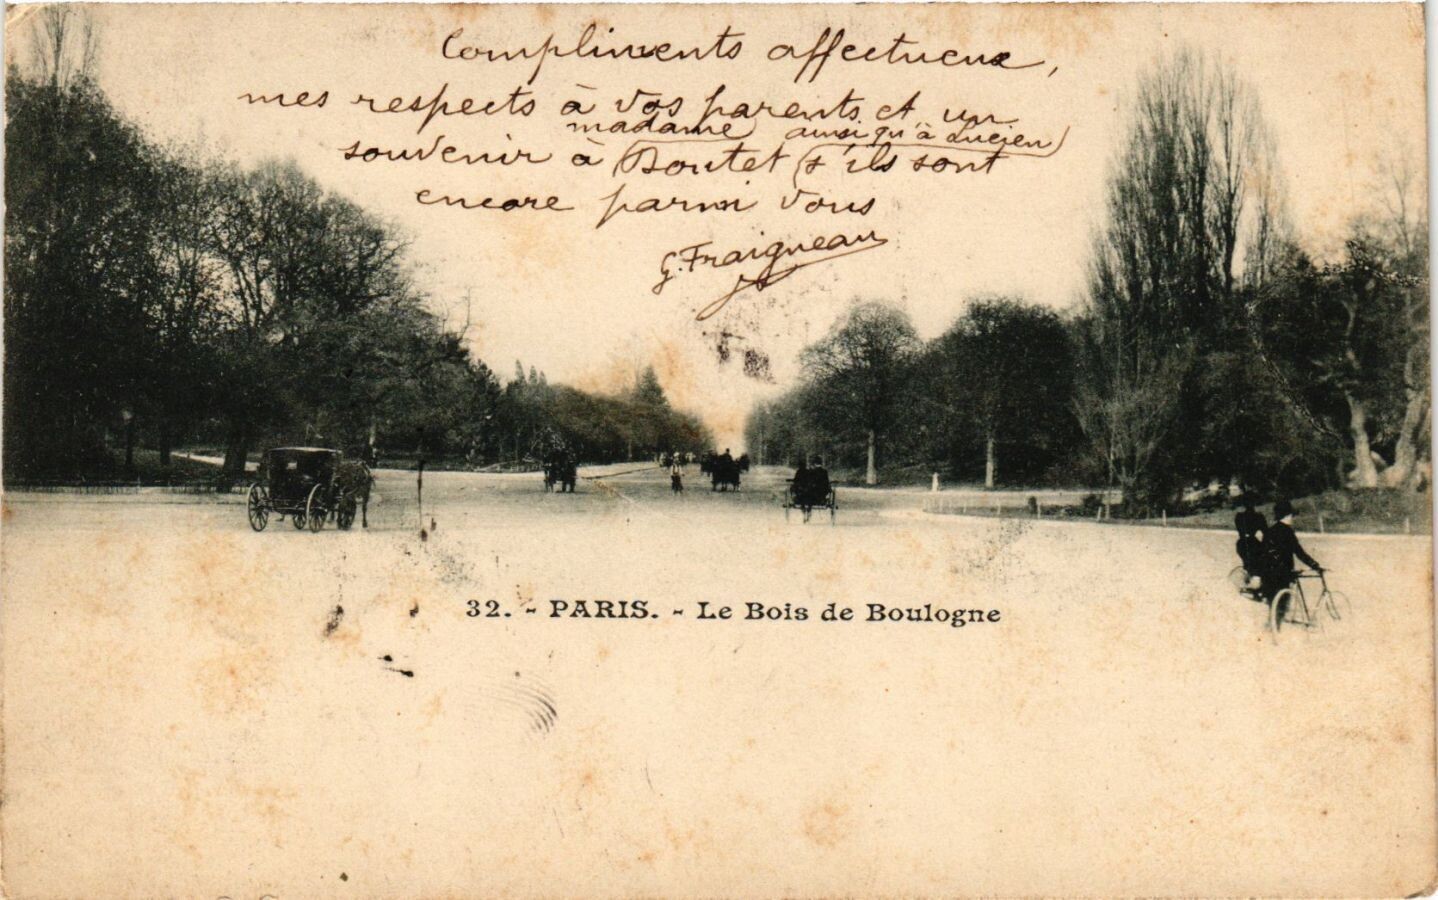 Compliments affectueux,
mes respects à vos parents et un
madame ainsi qu'à Lucien
souvenir à Boutet s'ils sont
encore parmi vous
G. Fraigneau
32. - PARIS. - Le Bois de Boulogne